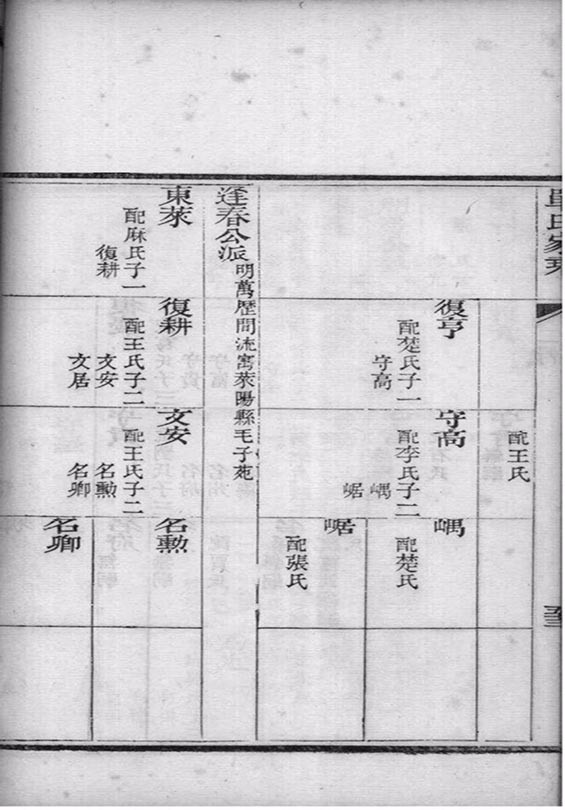 氏家
配王氏
復亨
配楚氏子一
守高
守高
配李氏子二
嵎
崌
嵎
配楚氏
崌
配張氏
逢春公派 明萬歷間流寓萊陽縣毛子苑
東萊
配麻氏子一
復耕
復耕
配王氏子二
文安
文居
文安
配王氏子二
名勲
名卿
名勲
名卿